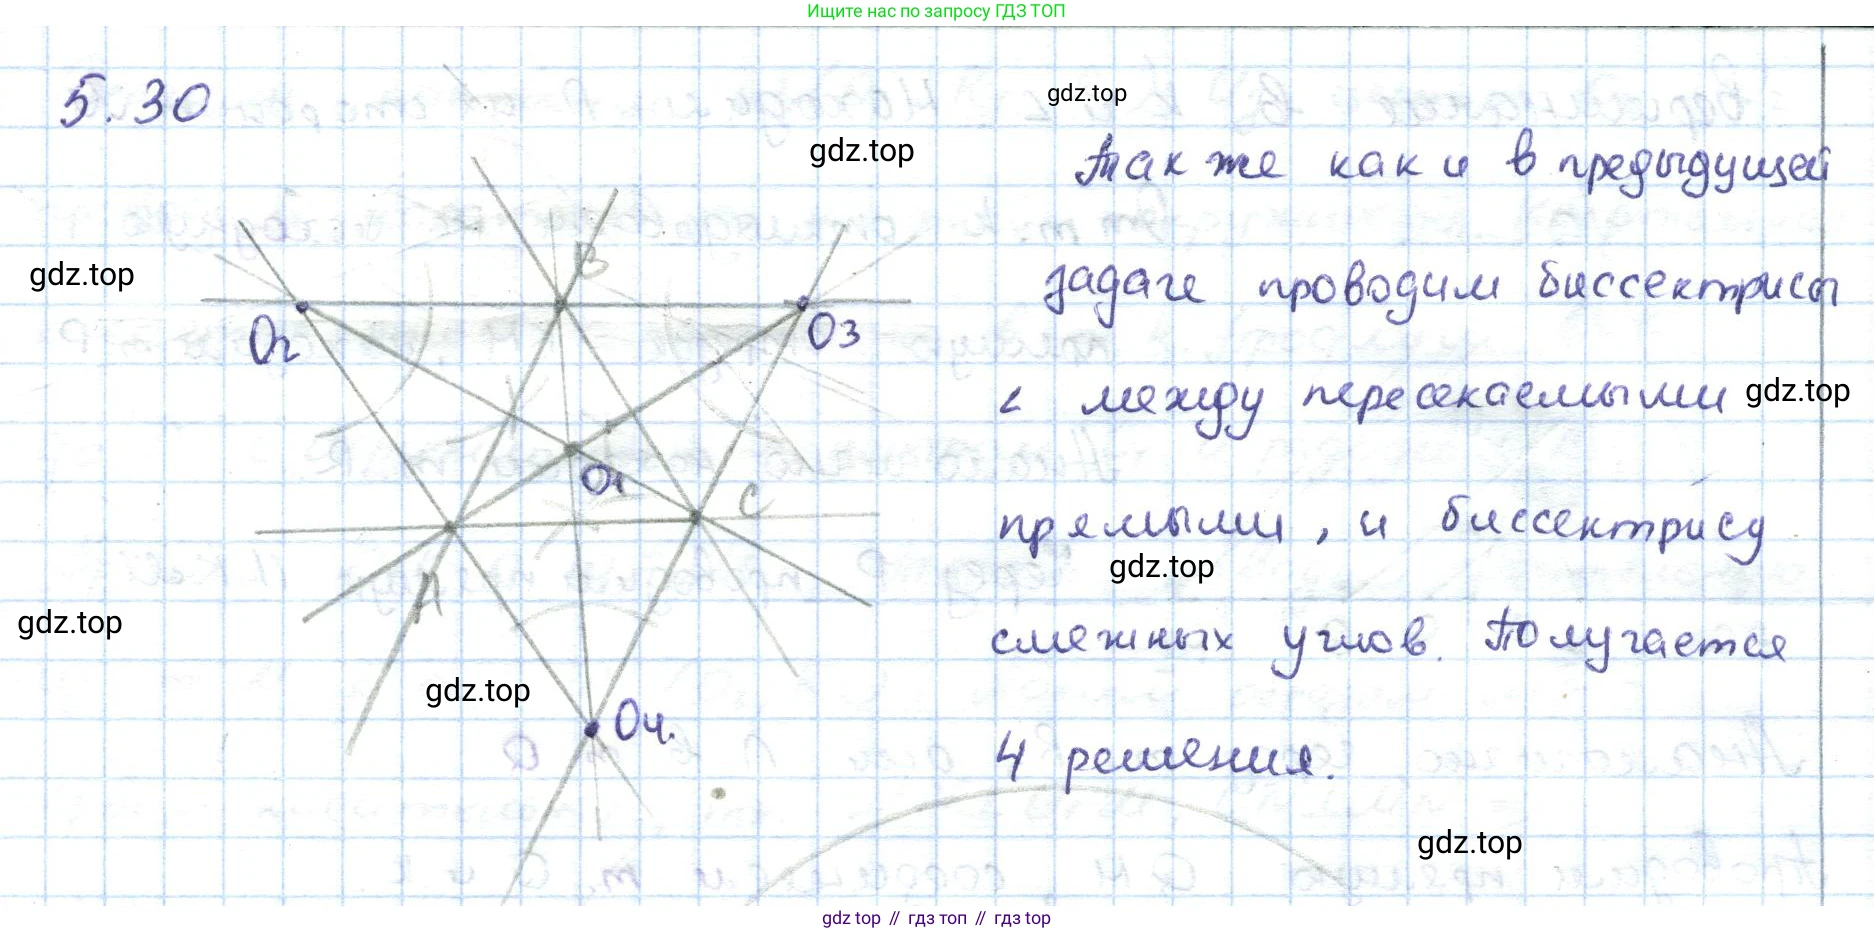 Ищите нас по запросу ГДЗ ТОП
5.30
gdz.top
gdz.top
Также как и в предыдущей
gdz.top
задаче проводим биссектрисы
B
O2
O3
∠ между пересекаемыми gdz.top
O1
C
прямыми, и биссектрису
gdz.top
A
gdz.top
смежных углов. Получается
gdz.top
O4.
4 решения.
gdz.top
gdz top // гдз топ // gdz top